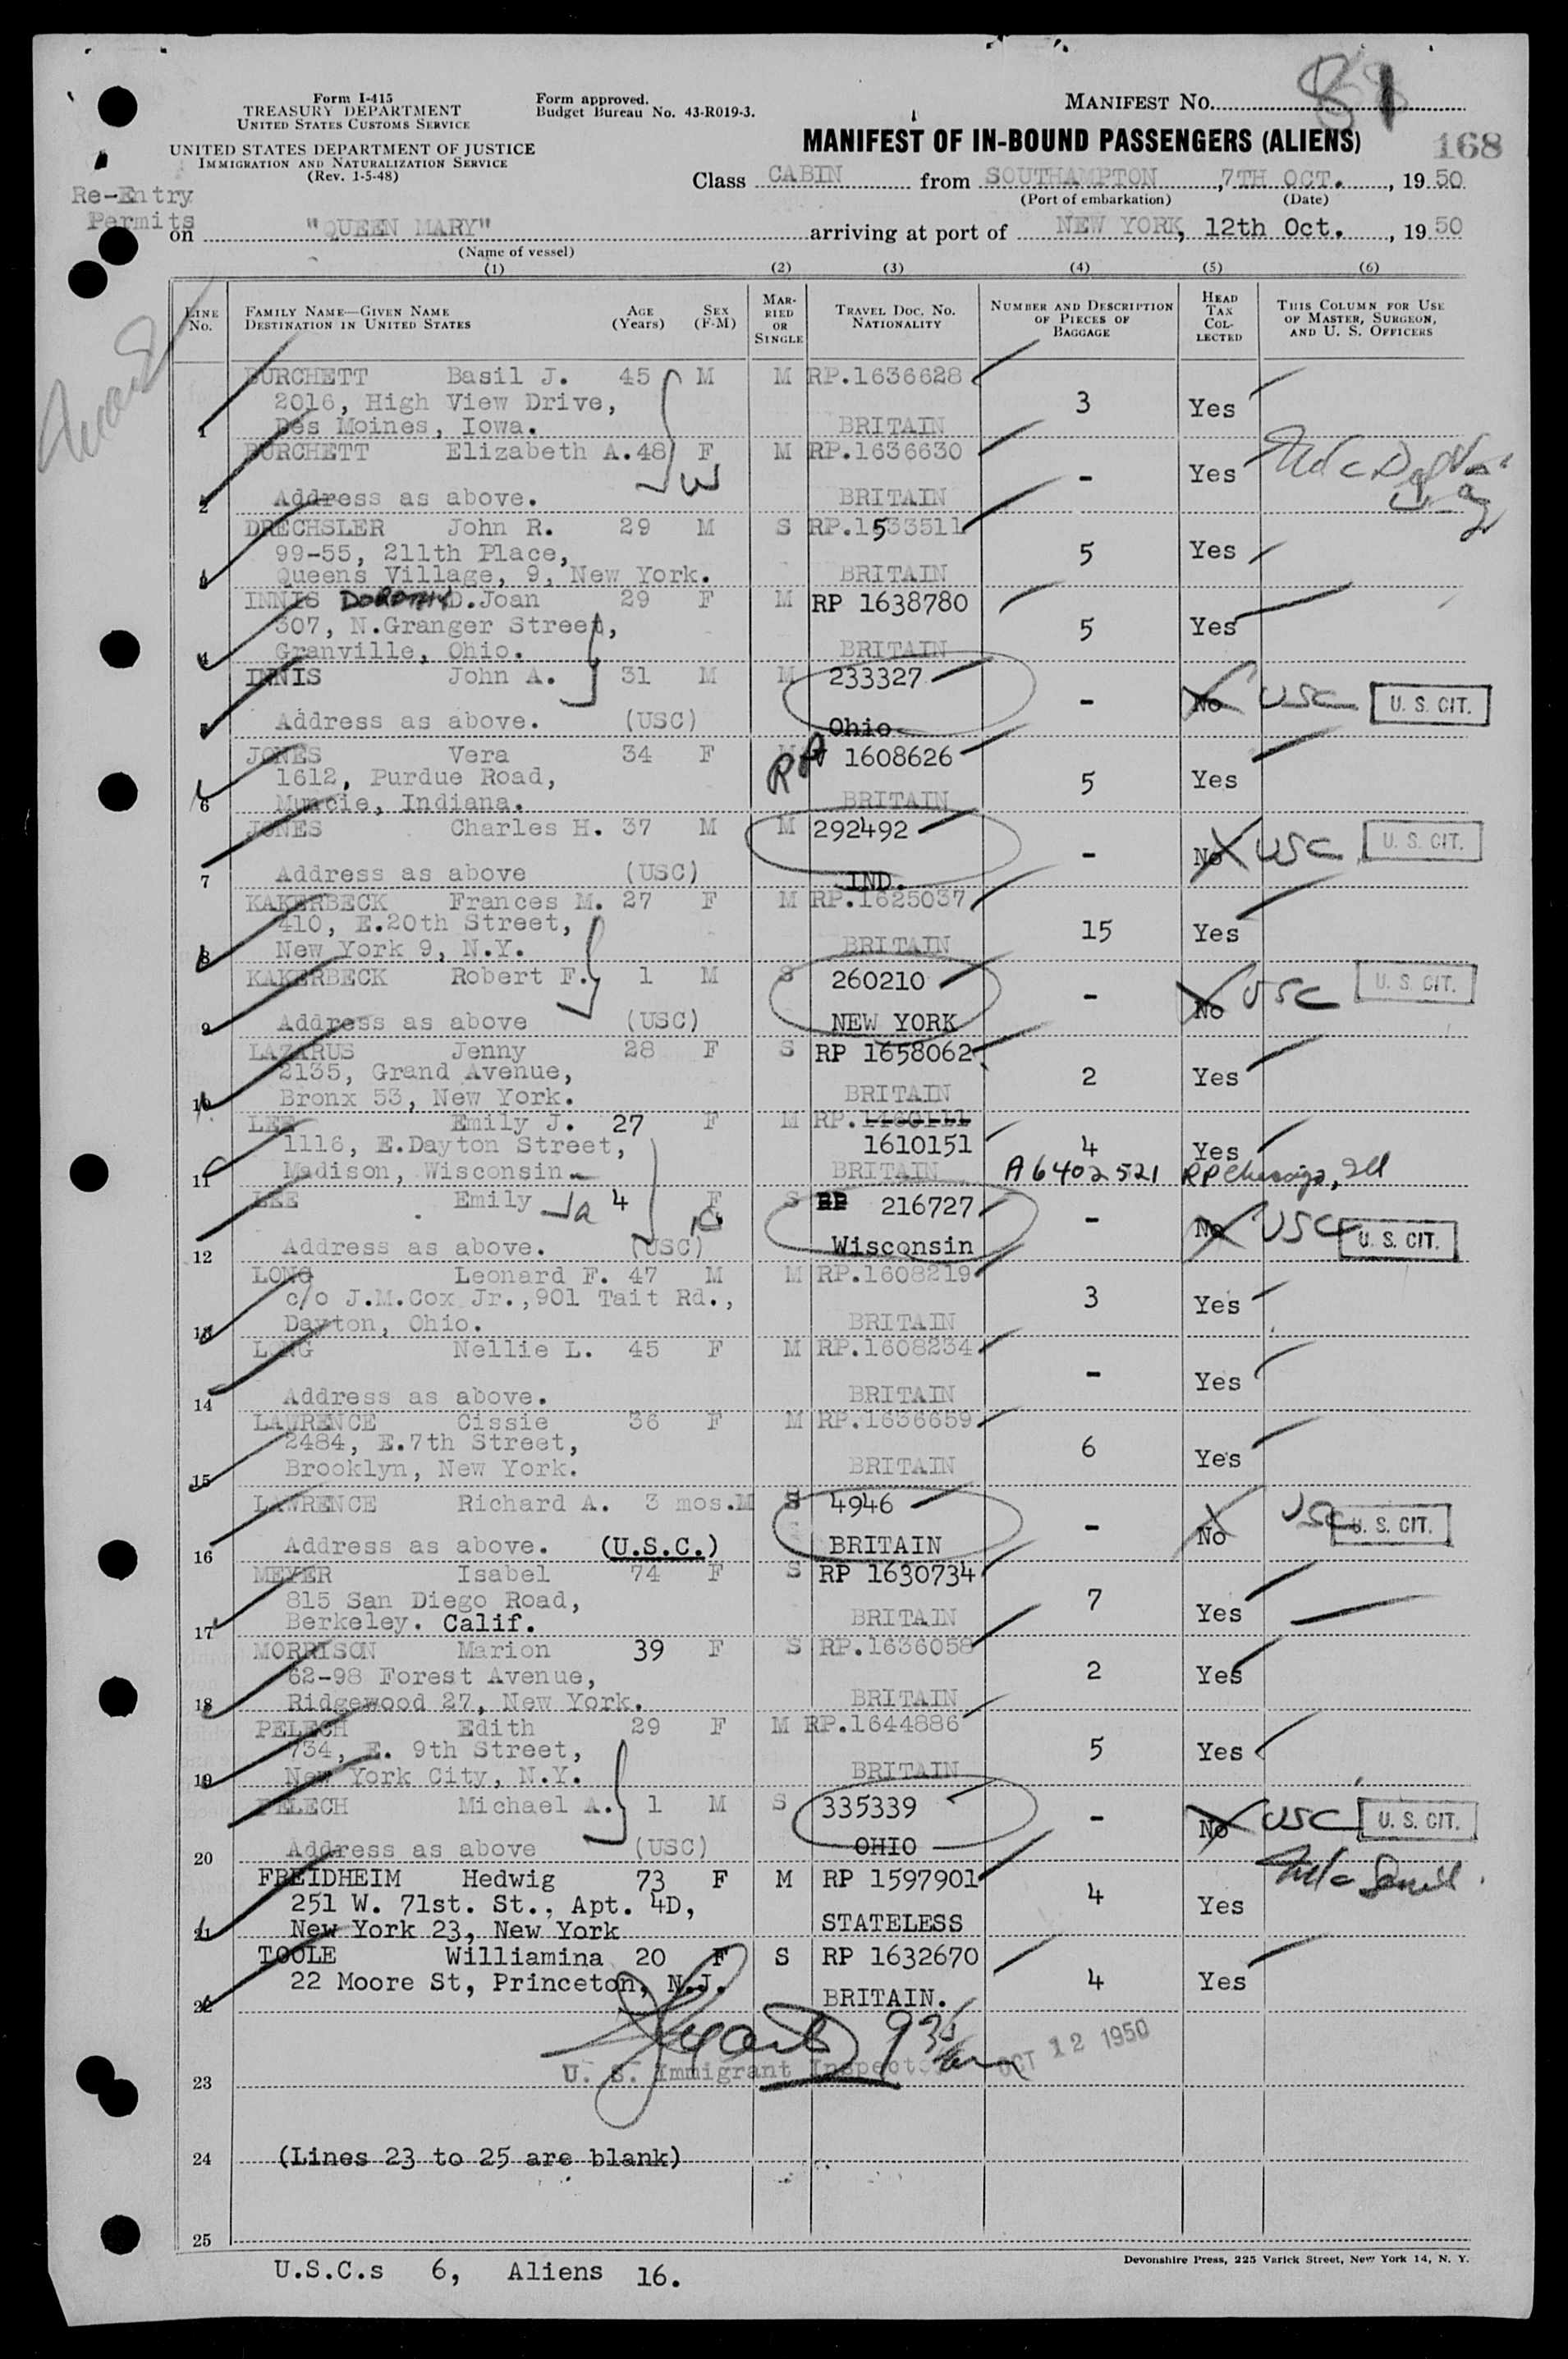 Form I-415
TREASURY DEPARTMENT
UNITED STATES CUSTOMS SERVICE
UNITED STATES DEPARTMENT OF JUSTICE
IMMIGRATION AND NATURALIZATION SERVICE
(Rev. 1-5-48)
Form approved.
Budget Bureau No. 43-R019-3.
MANIFEST NO. 81
MANIFEST OF IN-BOUND PASSENGERS (ALIENS)
168
Re-Entry
Permits
Class CABIN from SOUTHAMPTON, 7TH OCT., 1950
(Port of embarkation) (Date)
on "QUEEN MARY" arriving at port of NEW YORK, 12th Oct., 1950
(Name of vessel)
(1) (2) (3) (4) (5) (6)
LINE No.
FAMILY NAME—GIVEN NAME DESTINATION IN UNITED STATES
AGE (Years)
SEX (F-M)
MARRIED OR SINGLE
TRAVEL DOC. NO. NATIONALITY
NUMBER AND DESCRIPTION OF PIECES OF BAGGAGE
HEAD TAX COLLECTED
THIS COLUMN FOR USE OF MASTER, SURGEON, AND U. S. OFFICERS
BURCHETT Basil J. 45 M M RP.1636628
2016, High View Drive, 3 Yes
1 Des Moines, Iowa. BRITAIN
BURCHETT Elizabeth A. 48 F M RP.1636630
- Yes
2 Address as above. BRITAIN
DRECHSLER John R. 29 M S RP.1533511
99-55, 211th Place, 5 Yes
3 Queens Village, 9, New York. BRITAIN
INNIS DOROTHY D.Joan 29 F M RP 1638780
307, N.Granger Street, 5 Yes
4 Granville, Ohio. BRITAIN
INNIS John A. 31 M M 233327
- No USC U. S. CIT.
5 Address as above. (USC) Ohio
JONES Vera 34 F M RP 1608626
1612, Purdue Road, 5 Yes
6 Muncie, Indiana. BRITAIN
JONES Charles H. 37 M M 292492
- No USC U. S. CIT.
7 Address as above (USC) IND.
KAKERBECK Frances M. 27 F M RP.1625037
410, E.20th Street, 15 Yes
8 New York 9, N.Y. BRITAIN
KAKERBECK Robert F. 1 M S 260210
- No USC U. S. CIT.
9 Address as above (USC) NEW YORK
LAZARUS Jenny 28 F S RP 1658062
2135, Grand Avenue, 2 Yes
10 Bronx 53, New York. BRITAIN
LEE Emily J. 27 F M RP.1460111
1116, E.Dayton Street, 1610151 4 Yes
11 Madison, Wisconsin. BRITAIN A6402521 RP Chicago, Ill
LEE Emily Ja 4 F S RP 216727
- No USC U. S. CIT.
12 Address as above. (USC) Wisconsin
LONG Leonard F. 47 M M RP.1608219
c/o J.M.Cox Jr.,901 Tait Rd., 3 Yes
13 Dayton, Ohio. BRITAIN
LONG Nellie L. 45 F M RP.1608234
- Yes
14 Address as above. BRITAIN
LAWRENCE Cissie 36 F M RP.1636659
2484, E.7th Street, 6 Yes
15 Brooklyn, New York. BRITAIN
LAWRENCE Richard A. 3 mos. M S 4946
- No USC U. S. CIT.
16 Address as above. (U.S.C.) BRITAIN
MEYER Isabel 74 F S RP 1630734
815 San Diego Road, 7 Yes
17 Berkeley. Calif. BRITAIN
MORRISON Marion 39 F S RP.1636058
62-98 Forest Avenue, 2 Yes
18 Ridgewood 27, New York. BRITAIN
PELECH Edith 29 F M RP.1644886
734, E. 9th Street, 5 Yes
19 New York City, N.Y. BRITAIN
PELECH Michael A. 1 M S 335339
- No USC U. S. CIT.
20 Address as above (USC) OHIO
FREIDHEIM Hedwig 73 F M RP 1597901
251 W. 71st. St., Apt. 4D, 4 Yes
21 New York 23, New York STATELESS
TOOLE Williamina 20 F S RP 1632670
22 Moore St, Princeton, N.J. 4 Yes
22 BRITAIN.
U. S. Immigrant Inspector OCT 12 1950
23
24 (Lines 23 to 25 are blank)
25
Devonshire Press, 225 Varick Street, New York 14, N. Y.
U.S.C.s 6, Aliens 16.